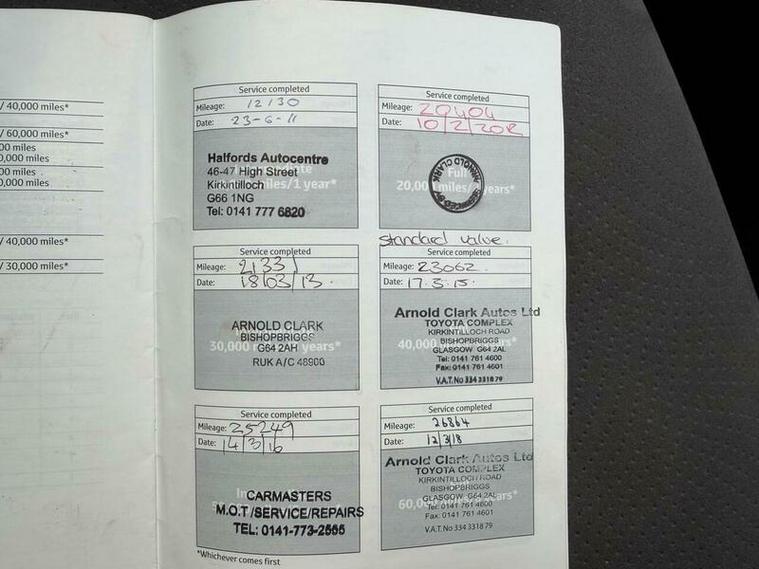 / 40,000 miles*
/ 60,000 miles*
00 miles
0,000 miles
00 miles
0,000 miles
/ 40,000 miles*
/ 30,000 miles*
Service completed
Mileage: 12130
Date: 23-6-11
Halfords Autocentre
46-47 High Street
Kirkintilloch
G66 1NG
Tel: 0141 777 6820
miles/1 year*
Service completed
Mileage: 20404
Date: 10/2/2012
Full
20,000 miles/2 years*
ARNOLD CLARK
SERVICED BY
Standard value.
Service completed
Mileage: 21331
Date: 18/03/13.
ARNOLD CLARK
BISHOPBRIGGS
G64 2AH
RUK A/C 48900
30,000 years*
Service completed
Mileage: 23062.
Date: 17.3.15.
Arnold Clark Autos Ltd
TOYOTA COMPLEX
KIRKINTILLOCH ROAD
BISHOPBRIGGS
GLASGOW G64 2AL
Tel: 0141 761 4600
Fax: 0141 761 4601
V.A.T. No 334 3318 79
40,000 years*
Service completed
Mileage: 25249
Date: 14/3/16
CARMASTERS
M.O.T/SERVICE/REPAIRS
TEL: 0141-773-2565
Service completed
Mileage: 26864
Date: 12/3/18
Arnold Clark Autos Ltd
TOYOTA COMPLEX
KIRKINTILLOCH ROAD
BISHOPBRIGGS
GLASGOW G64 2AL
Tel: 0141 761 4600
Fax: 0141 761 4601
V.A.T. No 334 3318 79
60,000 years*
*Whichever comes first